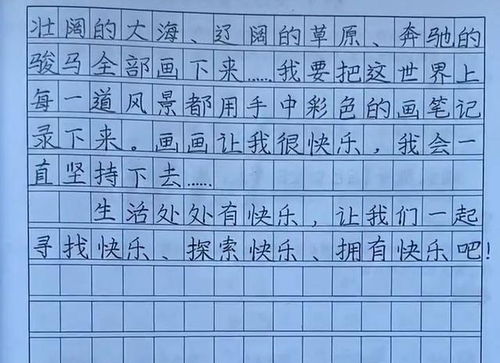 壮阔的大海、辽阔的草原、奔驰的
骏马全部画下来……我要把这世界上
每一道风景都用手中彩色的画笔记
录下来。画画让我很快乐，我会一
直坚持下去……
生活处处有快乐，让我们一起
寻找快乐、探索快乐、拥有快乐吧！